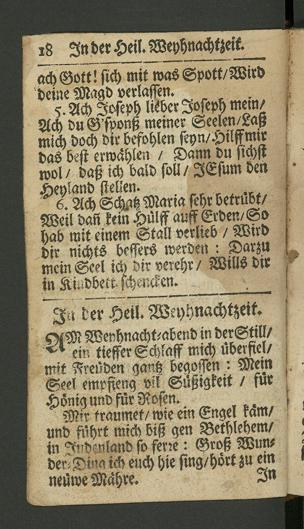 18 In der Heil. Weyhnachtzeit.
ach Gott! sich mit was Spott/ Wird
deine Magd verlassen.
5. Ach Joseph lieber Joseph mein/
Ach du G'sponß meiner Seelen/ Laß
mich doch dir befohlen seyn/ Hilff mir
das best erwählen / Dann du sichst
wol / daß ich bald soll / JEsum den
Heyland stellen.
6. Ach Schatz Maria sehr betrübt/
Weil dañ kein Hülff auff Erden/ So
hab mit einem Stall verlieb / Wird
dir nichts bessers werden : Darzu
mein Seel ich dir verehr / Wills dir
in Kindbett schencken.
In der Heil. Weyhnachtzeit.
AM Weyhnacht-abend in der Still/
ein tieffer Schlaff mich überfiel/
mit Freüden gantz begossen : Mein
Seel empfieng vil Süßigkeit / für
Hönig und für Rosen.
Mir traumet/ wie ein Engel käm/
und führt mich biß gen Bethlehem/
in Judenland so ferre : Groß Wun-
der-Ding ich euch hie sing/ hört zu ein
neüwe Mähre.
In